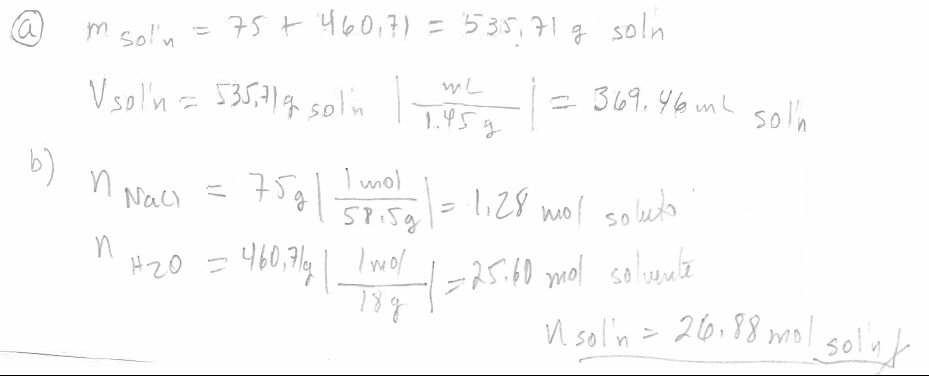 ⓐ m sol'n = 75 + 460,71 = 535,71 g soln
V sol'n = 535,71 g sol'n | mL / 1.45 g | = 369.46 mL sol'n
b) n NaCl = 75g | 1 mol / 58.5g | = 1,28 mol soluto
n H2O = 460,71g | 1 mol / 18 g | = 25.60 mol solvente
n sol'n = 26.88 mol sol'n